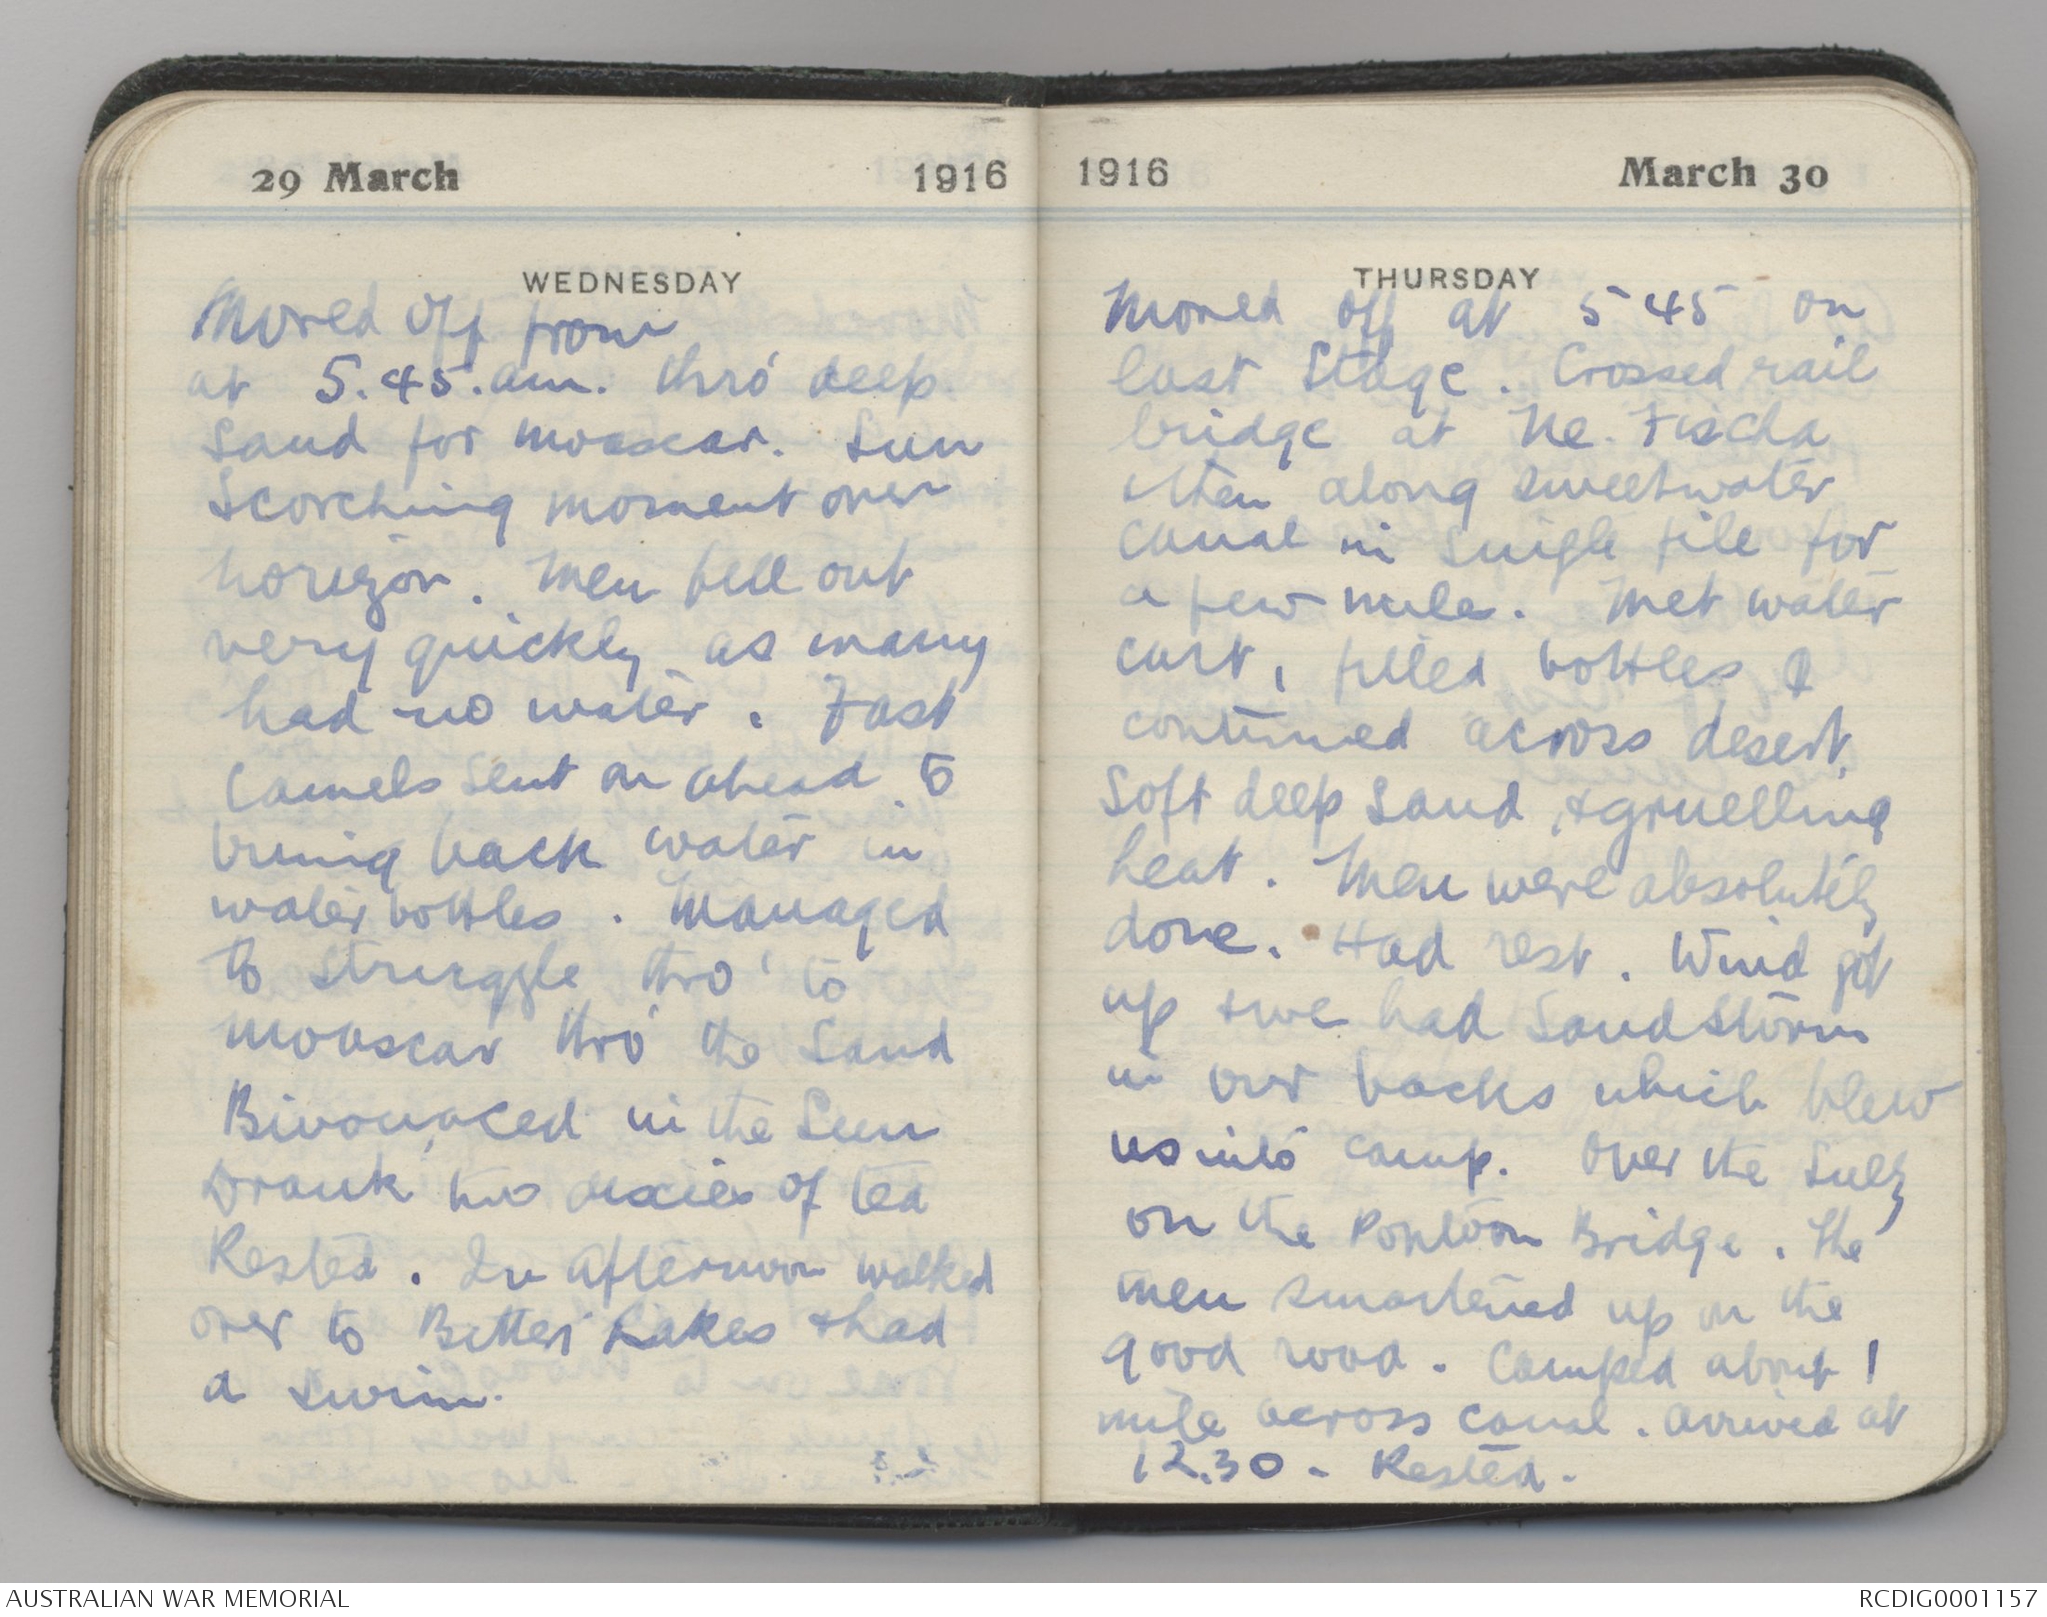 29 March 1916
WEDNESDAY
Moved off from
at 5.45.am. thro' deep
sand for Moascar. Sun
scorching moment over
horizon. Men fell out
very quickly as many
had no water. Fast
Camels sent on ahead to
bring back water in
water bottles. Managed
to struggle thro' to
Moascar thro' the sand
Bivouaced in the Sun
Drank two dixies of tea
Rested. In afternoon walked
over to Bitter Lakes & had
a swim.
1916 March 30
THURSDAY
Moved off at 5 45 on
last stage. Crossed rail
bridge at Ne. Fischa
then along sweetwater
canal in single file for
a few mile. Met water
cart, filled bottles &
continued across desert.
Soft deep sand & gruelling
heat. Men were absolutely
done. Had rest. Wind got
up & we had Sand Storm
in our backs which blew
us into camp. Over the Suez
on the Pontoon Bridge. The
men smartened up on the
good road. Camped about 1
mile across canal. Arrived at
12.30 - Rested.
AUSTRALIAN WAR MEMORIAL
RCDIG0001157